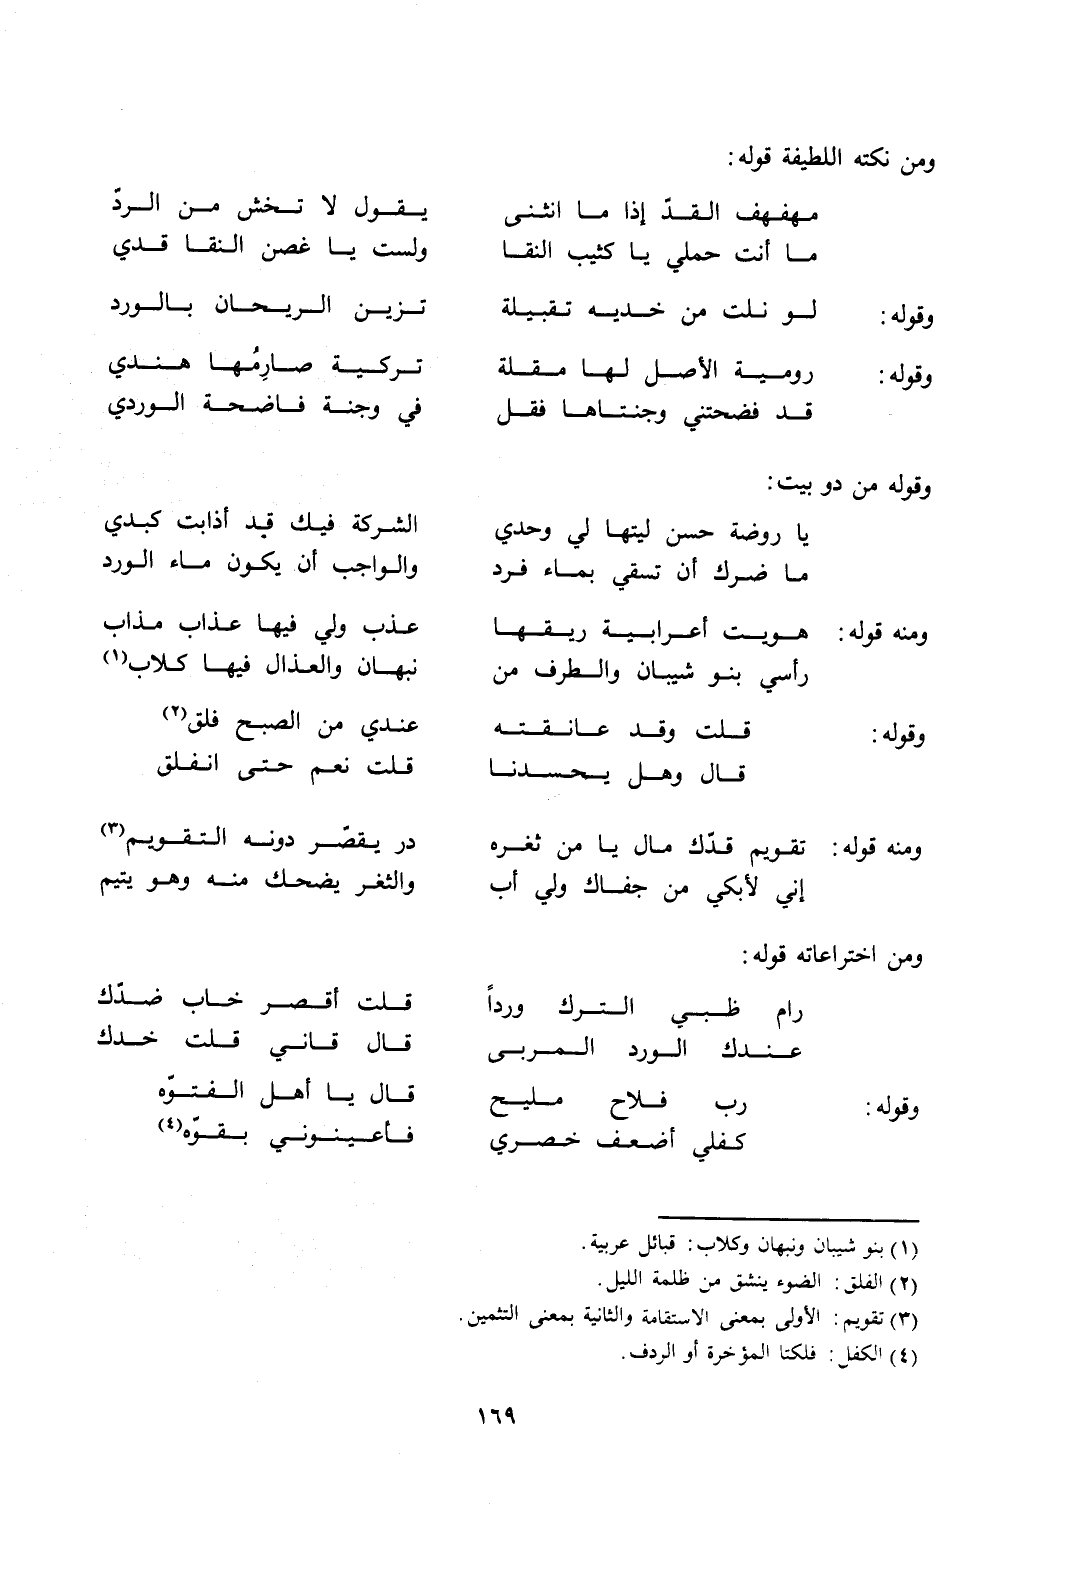 ومن نكته اللطيفة قوله:
مهفهف القدّ إذا ما انثنى يقول لا تخش من الردّ
ما أنت حملي يا كثيب النقا ولست يا غصن النقا قدي
وقوله: لو نلت من خديه تقبيلة تزين الريحان بالورد
وقوله: رومية الأصل لها مقلة تركية صارِمُها هندي
قد فضحتني وجنتاها فقل في وجنة فاضحة الوردي
وقوله من دو بيت:
يا روضة حسن ليتها لي وحدي الشركة فيك قد أذابت كبدي
ما ضرك أن تسقي بماء فرد والواجب أن يكون ماء الورد
ومنه قوله: هويت أعرابية ريقها عذب ولي فيها عذاب مذاب
رأسي بنو شيبان والطرف من نبهان والعذال فيها كلاب(١)
وقوله: قلت وقد عانقته عندي من الصبح فلق(٢)
قال وهل يحسدنا قلت نعم حتى انفلق
ومنه قوله: تقويم قدّك مال يا من ثغره در يقصّر دونه التقويم(٣)
إني لأبكي من جفاك ولي أب والثغر يضحك منه وهو يتيم
ومن اختراعاته قوله:
رام ظبي الترك ورداً قلت أقصر خاب ضدّك
عندك الورد المربى قال قاني قلت خدك
وقوله: رب فلاح مليح قال يا أهل الفتوّه
كفلي أضعف خصري فأعينوني بقوّه(٤)
(١) بنو شيبان ونبهان وكلاب: قبائل عربية.
(٢) الفلق: الضوء ينشق من ظلمة الليل.
(٣) تقويم: الأولى بمعنى الاستقامة والثانية بمعنى التثمين.
(٤) الكفل: فلكتا المؤخرة أو الردف.
١٦٩